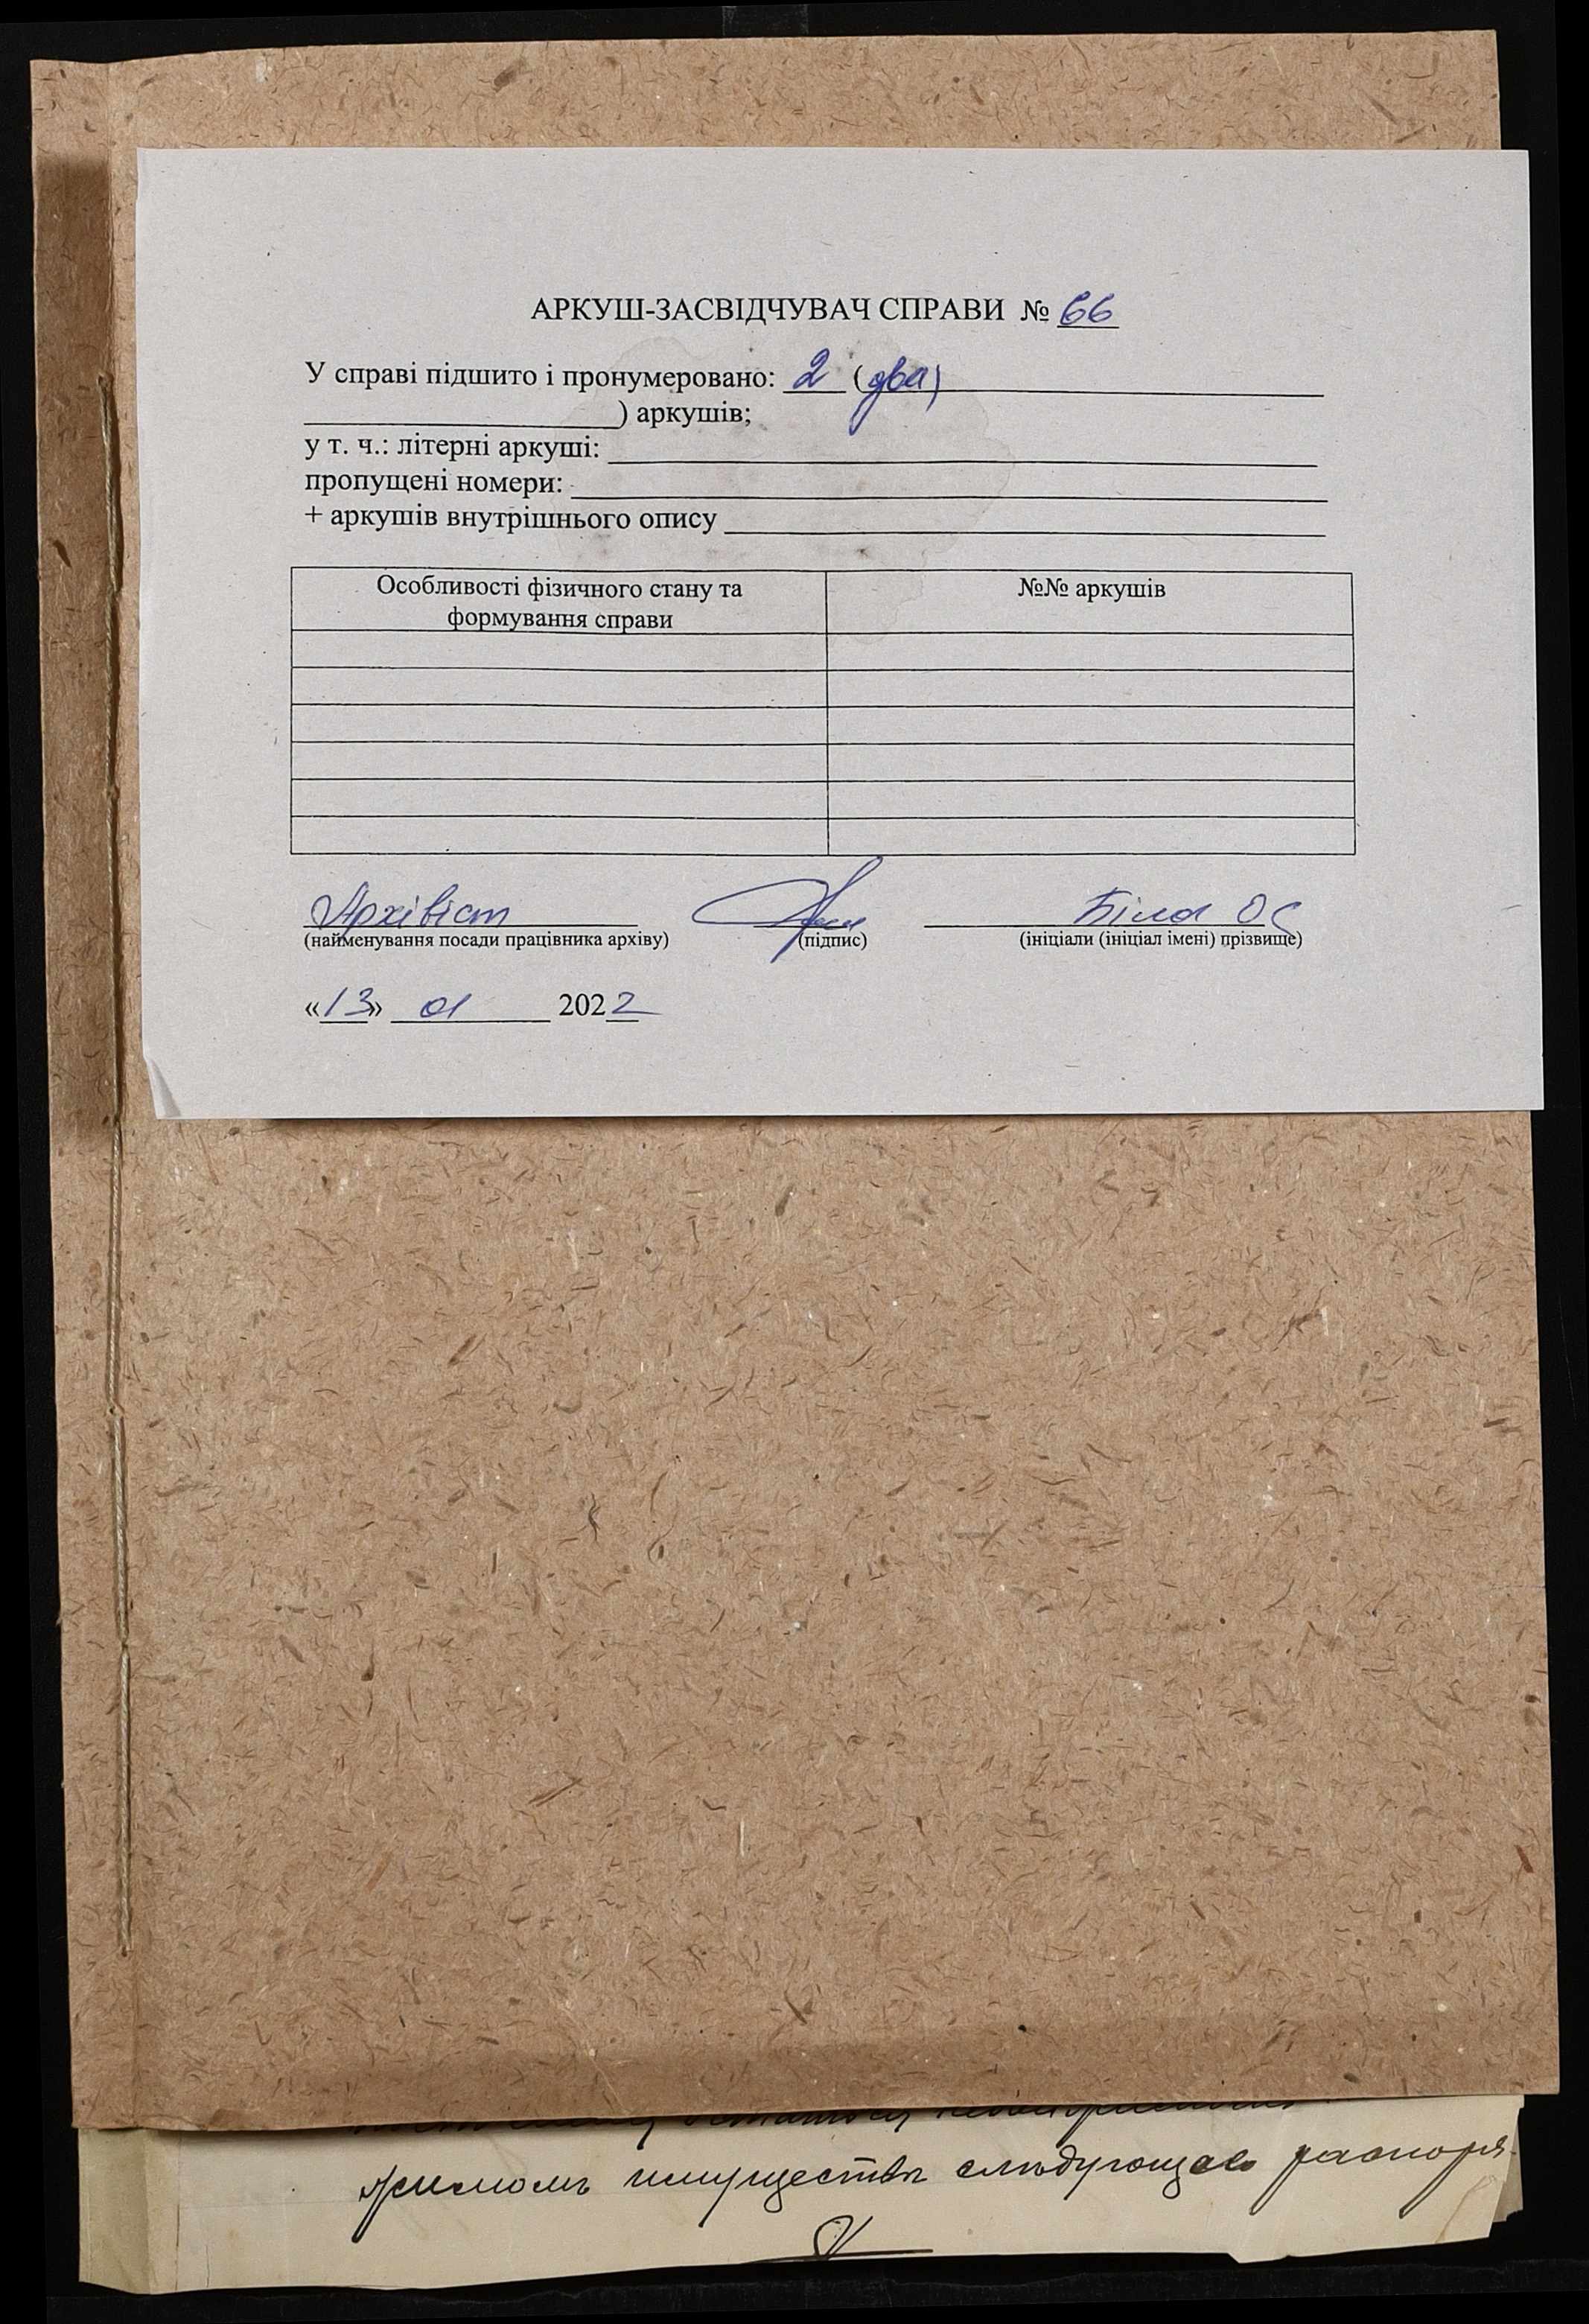 АРКУШ-ЗАСВІДЧУВАЧ СПРАВИ № 66
У справі підшито і пронумеровано: 2 (два)
) аркушів;
у т. ч.: літерні аркуші:
пропущені номери:
+ аркушів внутрішнього опису
Особливості фізичного стану та
формування справи
№№ аркушів
Архівіст Біла ОС
(найменування посади працівника архіву) (підпис) (ініціали (ініціал імені) прізвище)
«13» 01 2022
имуществѣ слѣдующее распоря-